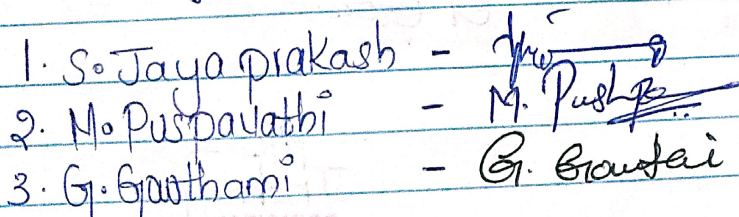 1. S. Jaya prakash -
2. M. Puspavathi - M. Pushpa
3. G. Gowthami - G. Gowtami